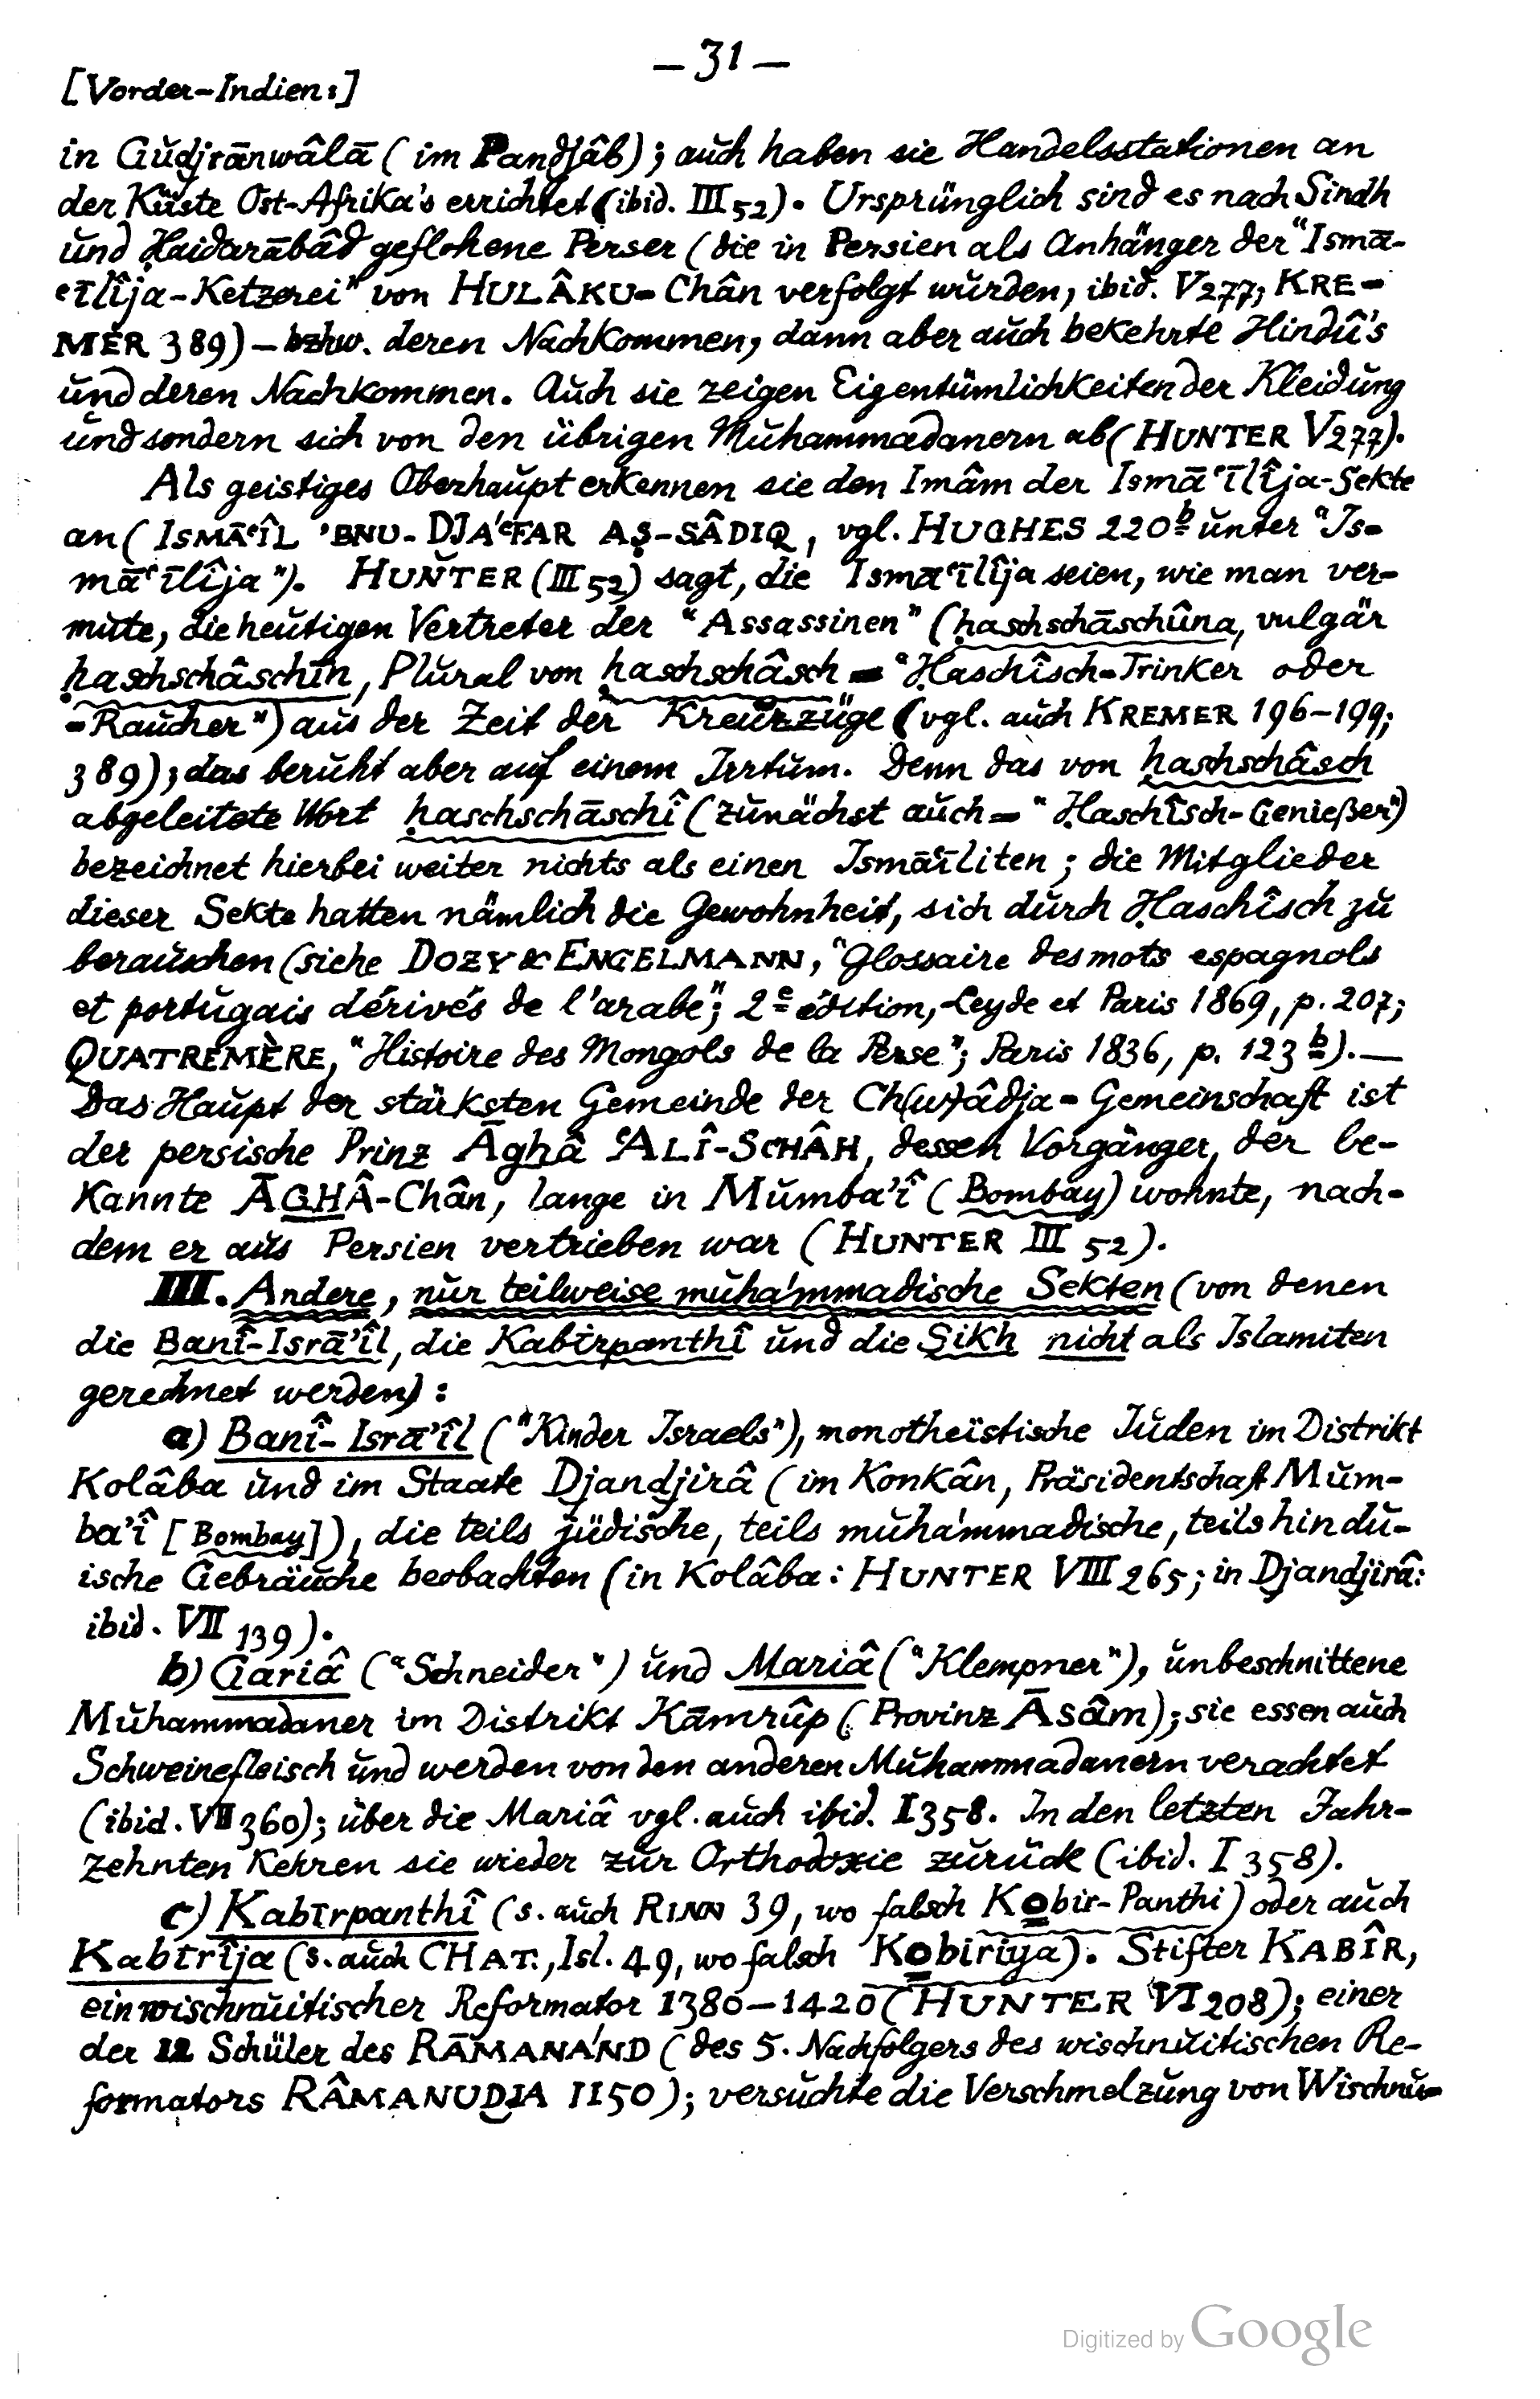 — 31 —
[Vorder-Indien:]
in Gudjrānwâlā (im Pandjâb); auch haben sie Handelsstationen an
der Küste Ost-Afrika's errichtet (ibid. III 52). Ursprünglich sind es nach Sindh
und Ḥaidarābâd geflohene Perser (die in Persien als Anhänger der "Ismā-
ʿīlîja-Ketzerei" von HULÂKU-Chân verfolgt wurden, ibid. V 277; KRE-
MER 389) — bzhw. deren Nachkommen, dann aber auch bekehrte Hindû's
und deren Nachkommen. Auch sie zeigen Eigentümlichkeiten der Kleidung
und sondern sich von den übrigen Muhammadanern ab (HUNTER V 277).
Als geistiges Oberhaupt erkennen sie den Imâm der Ismāʿīlîja-Sekte
an (ISMĀʿÎL 'BNU-DJAʿFAR AṢ-SÂDIQ, vgl. HUGHES 220ᵇ unter "Is-
māʿīlîja"). HUNTER (III 52) sagt, die Ismāʿīlîja seien, wie man ver-
mute, die heutigen Vertreter der "Assassinen" (ḥaschschāschûna, vulgär
ḥaschschâschīn, Plural von ḥaschschâsch = "Ḥaschîsch-Trinker oder
-Raucher") aus der Zeit der Kreuzzüge (vgl. auch KREMER 196–199;
389); das beruht aber auf einem Irrtum. Denn das von ḥaschschâsch
abgeleitete Wort ḥaschschāschî (zunächst auch = "Ḥaschîsch-Genießer")
bezeichnet hierbei weiter nichts als einen Ismāʿīliten; die Mitglieder
dieser Sekte hatten nämlich die Gewohnheit, sich durch Ḥaschîsch zu
berauschen (siehe DOZY & ENGELMANN, "Glossaire des mots espagnols
et portugais dérivés de l'arabe"; 2ᵉ édition, Leyde et Paris 1869, p. 207;
QUATREMÈRE, "Histoire des Mongols de la Perse"; Paris 1836, p. 123ᵇ). —
Das Haupt der stärksten Gemeinde der Ch(w)âdja-Gemeinschaft ist
der persische Prinz Āghâ ʿALÎ-SCHÂH, dessen Vorgänger, der be-
kannte ĀGHÂ-Chân, lange in Mumba'î (Bombay) wohnte, nach-
dem er aus Persien vertrieben war (HUNTER III 52).
III. Andere, nur teilweise muhammadische Sekten (von denen
die Banî-Isrā'îl, die Kabīrpanthî und die Sikh nicht als Islamiten
gerechnet werden):
a) Banî-Isrā'îl ("Kinder Israels"), monotheïstische Juden im Distrikt
Kolâba und im Staate Djandjirâ (im Konkân, Präsidentschaft Mum-
ba'î [Bombay]), die teils jüdische, teils muhammadische, teils hindu-
ische Gebräuche beobachten (in Kolâba: HUNTER VIII 265; in Djandjirâ:
ibid. VII 139).
b) Gariâ ("Schneider") und Mariâ ("Klempner"), unbeschnittene
Muhammadaner im Distrikt Kāmrûp (Provinz Āsâm); sie essen auch
Schweinefleisch und werden von den anderen Muhammadanern verachtet
(ibid. VII 360); über die Mariâ vgl. auch ibid. I 358. In den letzten Jahr-
zehnten kehren sie wieder zur Orthodoxie zurück (ibid. I 358).
c) Kabīrpanthî (s. auch RINN 39, wo falsch Kobir-Panthi) oder auch
Kabīrîja (s. auch CHAT., Isl. 49, wo falsch Kobiriya). Stifter KABÎR,
ein wischnuitischer Reformator 1380–1420 (HUNTER VI 208); einer
der 12 Schüler des RĀMANAND (des 5. Nachfolgers des wischnuitischen Re-
formators RÂMANUDJA 1150); versuchte die Verschmelzung von Wischnu-
Digitized by Google